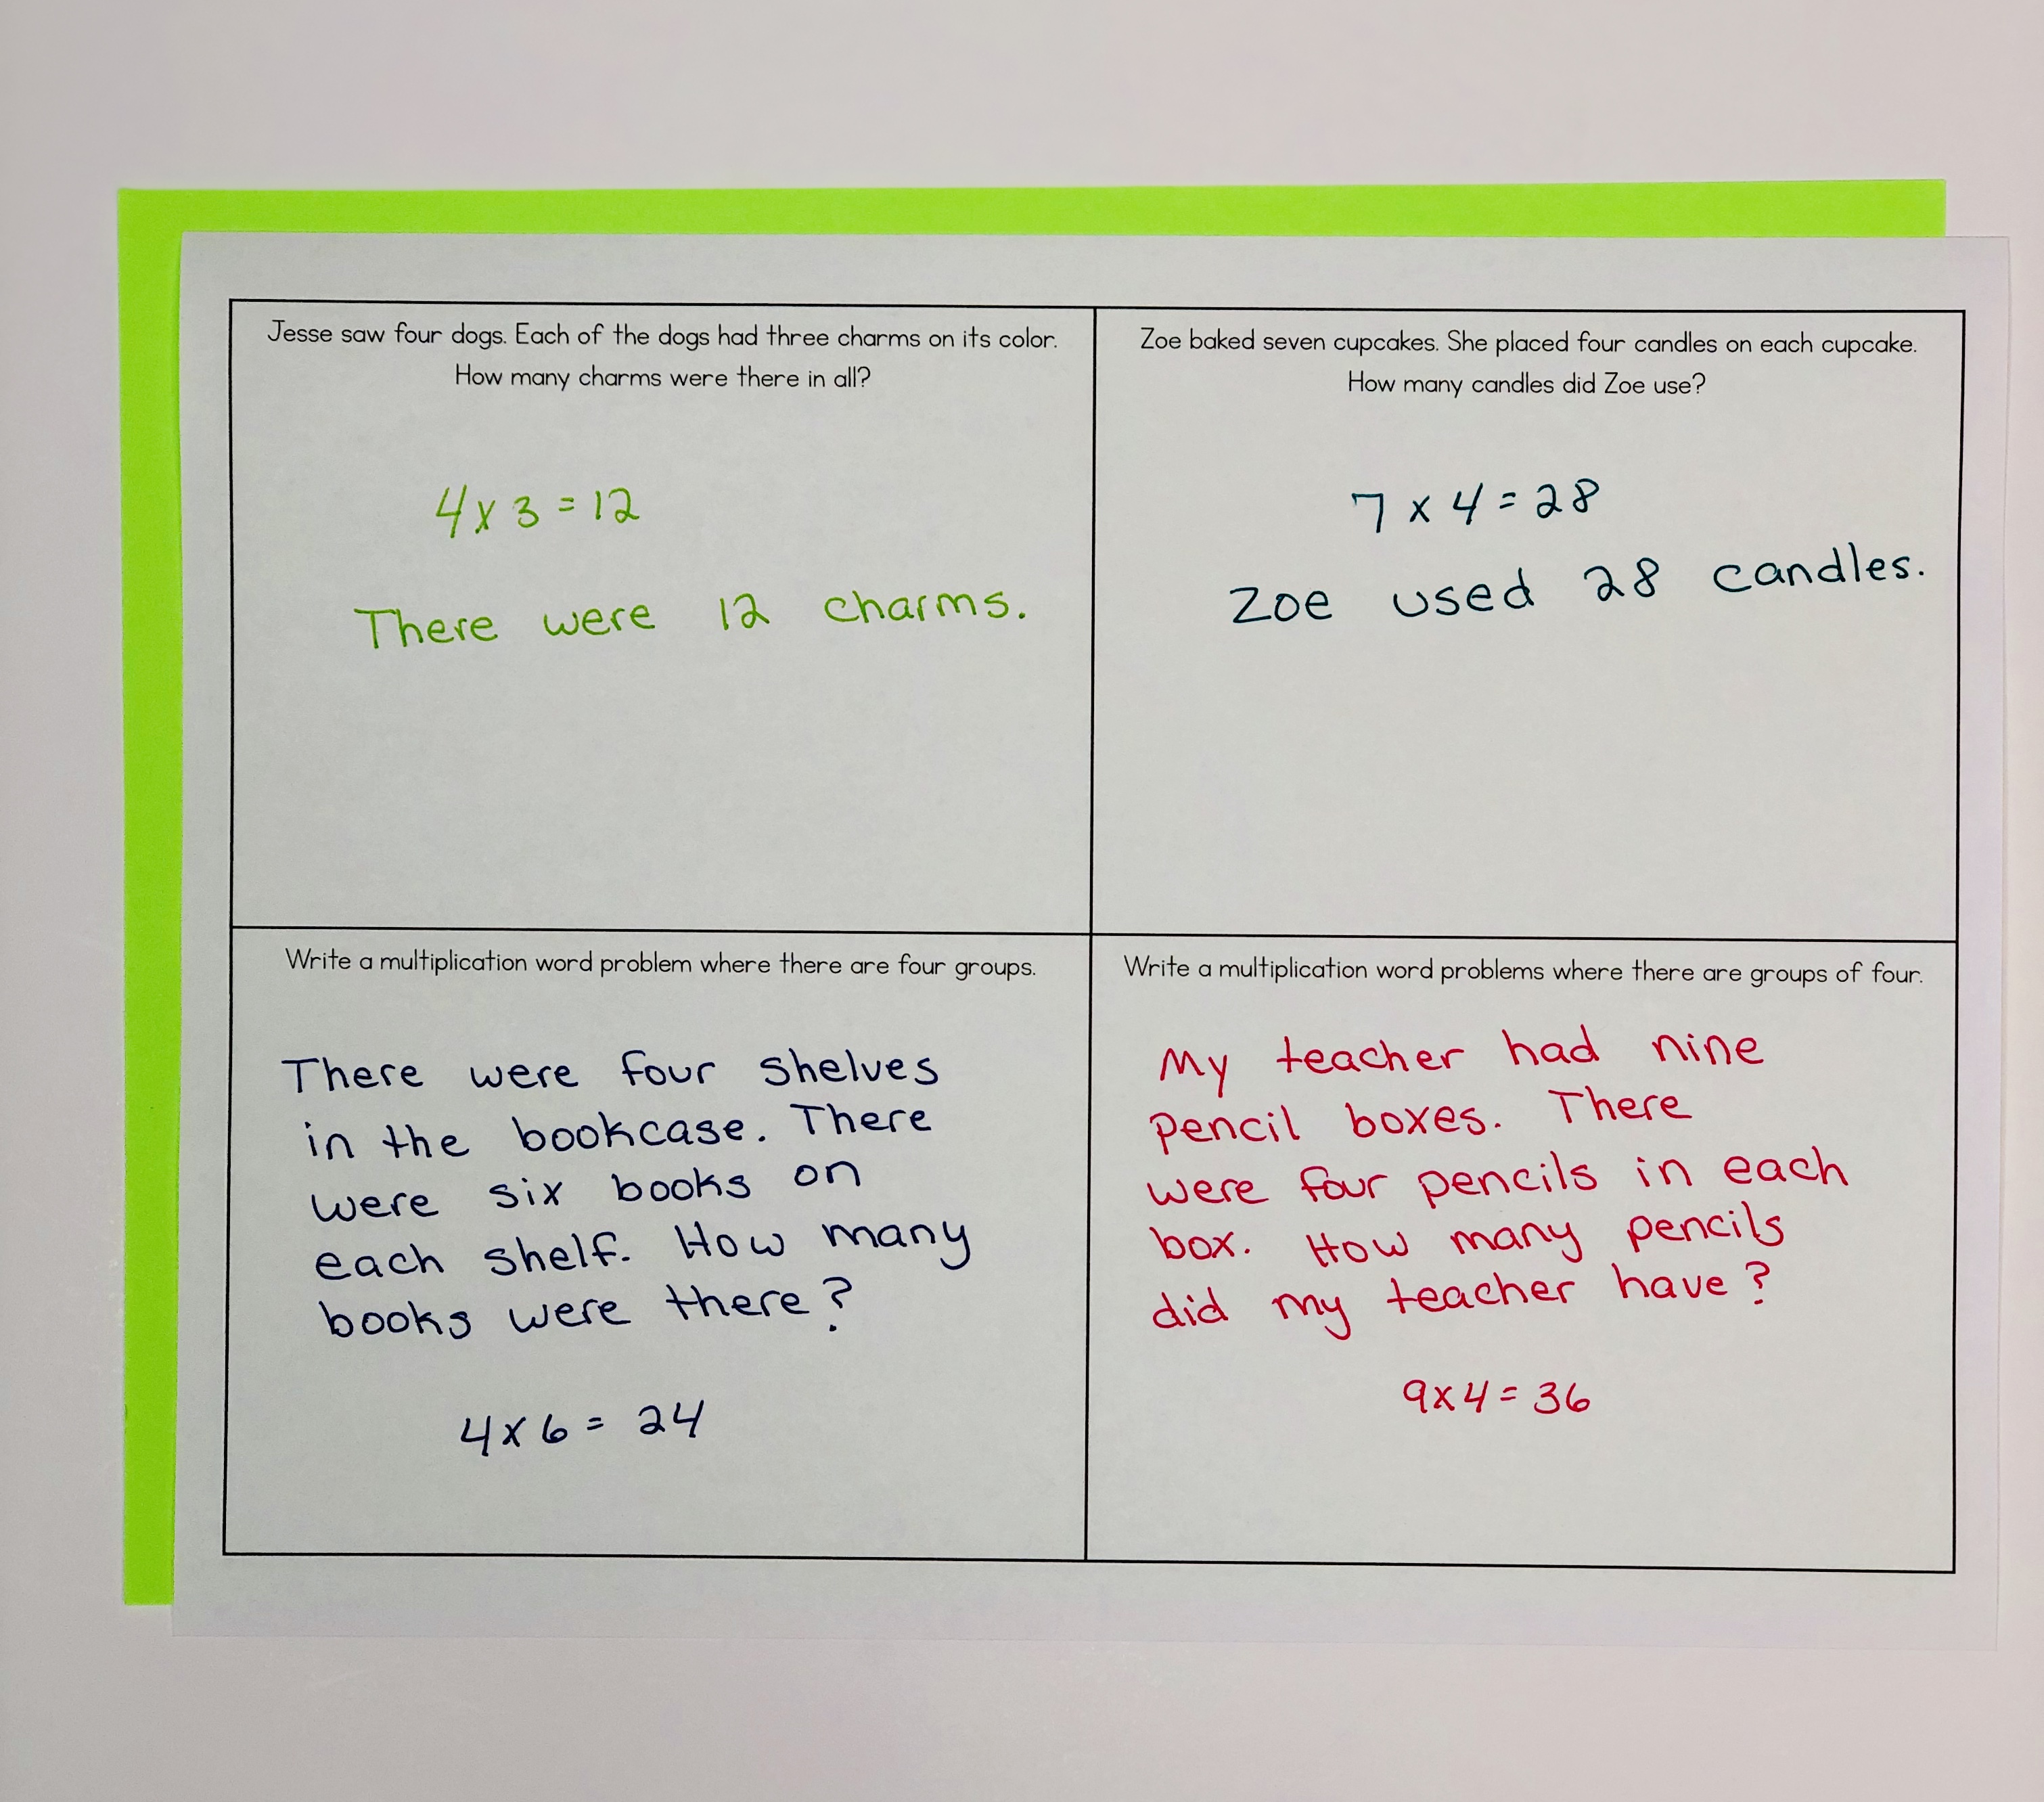 Jesse saw four dogs. Each of the dogs had three charms on its color.
How many charms were there in all?
4 x 3 = 12
There were 12 charms.
Zoe baked seven cupcakes. She placed four candles on each cupcake.
How many candles did Zoe use?
7 x 4 = 28
Zoe used 28 candles.
Write a multiplication word problem where there are four groups.
There were four shelves
in the bookcase. There
were six books on
each shelf. How many
books were there?
4 x 6 = 24
Write a multiplication word problems where there are groups of four.
My teacher had nine
pencil boxes. There
were four pencils in each
box. How many pencils
did my teacher have?
9 x 4 = 36